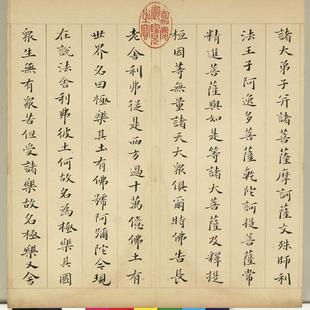 嘉慶御覽之寶
諸大弟子并諸菩薩摩訶薩文殊師利
法王子阿逸多菩薩乾陀訶提菩薩常
精進菩薩與如是等諸大菩薩及釋提
桓因等無量諸天大眾俱爾時佛告長
老舍利弗從是西方過十萬億佛土有
世界名曰極樂其土有佛號阿彌陀今現
在說法舍利弗彼土何故名為極樂其國
眾生無有眾苦但受諸樂故名極樂又舍